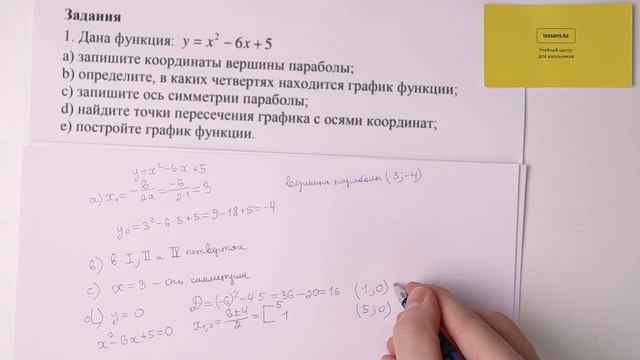 Задания
1. Дана функция: y = x² − 6x + 5
a) запишите координаты вершины параболы;
b) определите, в каких четвертях находится график функции;
c) запишите ось симметрии параболы;
d) найдите точки пересечения графика с осями координат;
e) постройте график функции.
lessons.kz
Учебный центр
для школьников
y=x²-6x+5
a) x₀=-b/2a=-6/2·1=3
вершина параболы (3;-4)
y₀=3²-6·3+5=9-18+5=-4
b) в I, II и IV четвертях
c) x=3 - ось симметрии
d) y=0
x²-6x+5=0
D=(-6)²-4·5=36-20=16
x₁,₂=6±4/2=[5 1
(1;0)
(5;0)